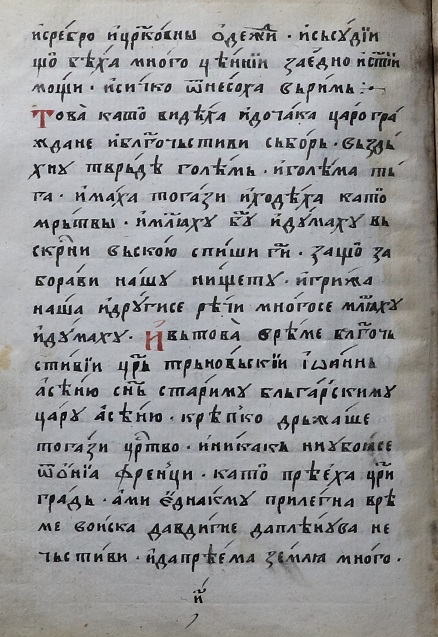 исребро ицр҃ковны ѻдежⷣи · исьсꙋдїи
що бѣха много цѣннїи заедно ист҃їи
мощи · исичко ѿнесоха върим ⁘
Това като видѣха идочака цароогра
ждане иблг҃очьстиви сьборь · въздь
хнꙋ твръдѣ големь · иголѣма тъ
га · имаха тогази иходѣха като
мрътвы · имл҃ꙗхꙋ бг҃ꙋ идꙋмахꙋ въ
скр҃ни въскою спиши гⷭ҇и · защо за
борави нашꙋ нищетꙋ · игрижа
наша идрꙋгисе рѣчи многосе мл҃ꙗхꙋ
идꙋмахꙋ · Ивътова време блг҃очь
стивїи цр҃ь трьновьскїи іѡаннь
асѣню сн҃ь старимꙋ бльгарскимꙋ
царꙋ асѣню · крѣпко дрьжаше
тогази црⷭ҇тво · иникакь ниꙋбоꙗсе
ѿѻнїа френци · като прѣеха цр҃и
градь · ами еднакмꙋ прилегна врѣ
ме воиска давдигне даплѣнꙋва не
чьстиви · идапрѣема землю много ·
и҃